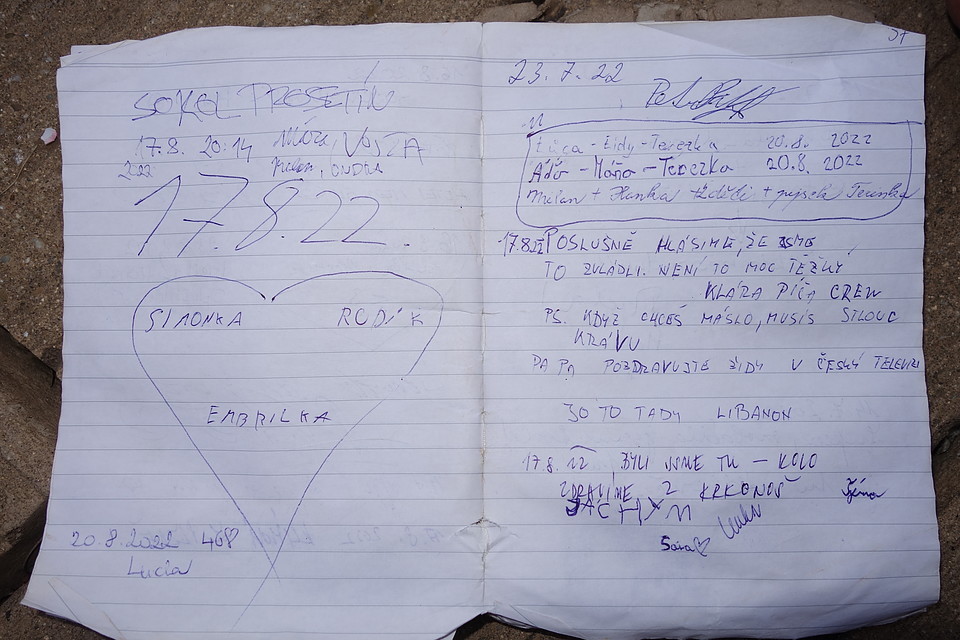 SOKOL PROSETÍN
17.8. 20:14
2022
VOSTA
ONDRA
17.8.22.
SIMONKA RODÍK
EMBRILKA
20.8.2022 468
Lucia
57
23.7.22
Lidy - Terezka 20.8. 2022
- Terezka 20.8. 2022
Milan + Hanka + děti + pejsek
17.8.22 POSLUŠNĚ HLÁSIME, ŽE JSME
TO ZVLÁDLI. NENÍ TO MOC TĚŽKÝ
KLÁRA PÍČA CREW
PS. KDYŽ CHCEŠ MÁSLO, MUSÍŠ STLOUC
KRÁVU
PA PA POZDRAVUJTE ŽIDY V ČESKÝ TELEVIZI
JO TO TADY LIBANON
17.8.22 BYLI JSME TU - KOLO
ZDRAVÍME Z KRKONOŠ
JÁCHYM
Sára♡